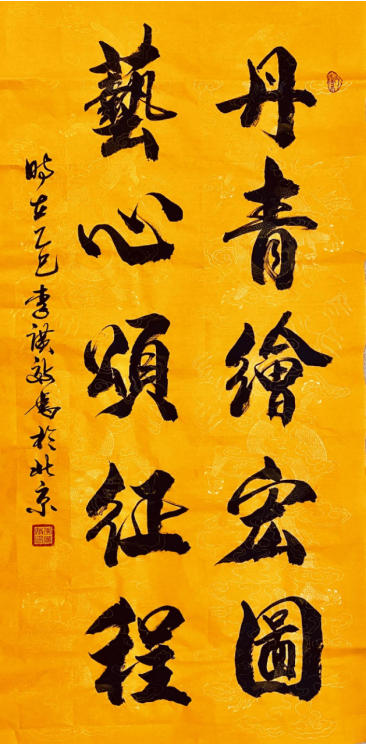 丹青繪宏圖
藝心頌征程
時在乙巳李謨敬書於北京